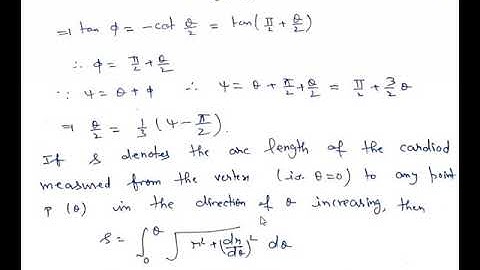 ⇒ tan φ = -cot θ/2 = tan(π/2 + θ/2)
∴ φ = π/2 + θ/2
∵ ψ = θ + φ ∴ ψ = θ + π/2 + θ/2 = π/2 + 3/2 θ
⇒ θ/2 = 1/3 (ψ - π/2).
If s denotes the arc length of the cardiod
measured from the vertex (i.e. θ=0) to any point
P (θ) in the direction of θ increasing, then
s = ∫₀^θ √(r² + (dr/dθ)²) dθ